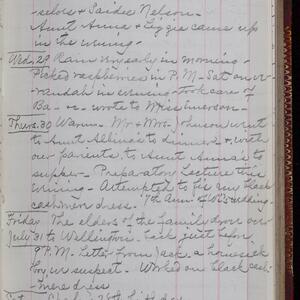 selors & Saidee Nelson.
Aunt Anna & Lizzie came up
in the evening.
Wed. 29 Rain very early in morning -
Picked raspberries in P.M - Sat on ver-
randah in evening - took care of
Ba - - wrote to Miss Emerson -
Thurs. 30 Warm. Mr & Mrs Johnson went
to Aunt Albina's to dinner & with
our parents, to Aunt Anna's to
supper. Preparatory Lecture this
evening - Attempted to fix my black
cashmere dress. 7th Ann. of wedding -
Friday The elders of the family drove over
July 31 to Wellington. Back just before
P.M. Letter from Jack a homesick
boy we suspect. Worked on black cash-
mere dress